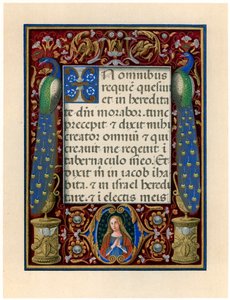 In omnibus
requiē quesiui
et in heredita
te dn̄i morabor. tunc
precepit & dixit mihi
creator omniū & qui
creauit me requieuit ī
tabernaculo meo. Et
dixit m̄ in iacob iha
bita. & in israel heredi
tare. & i electis meis